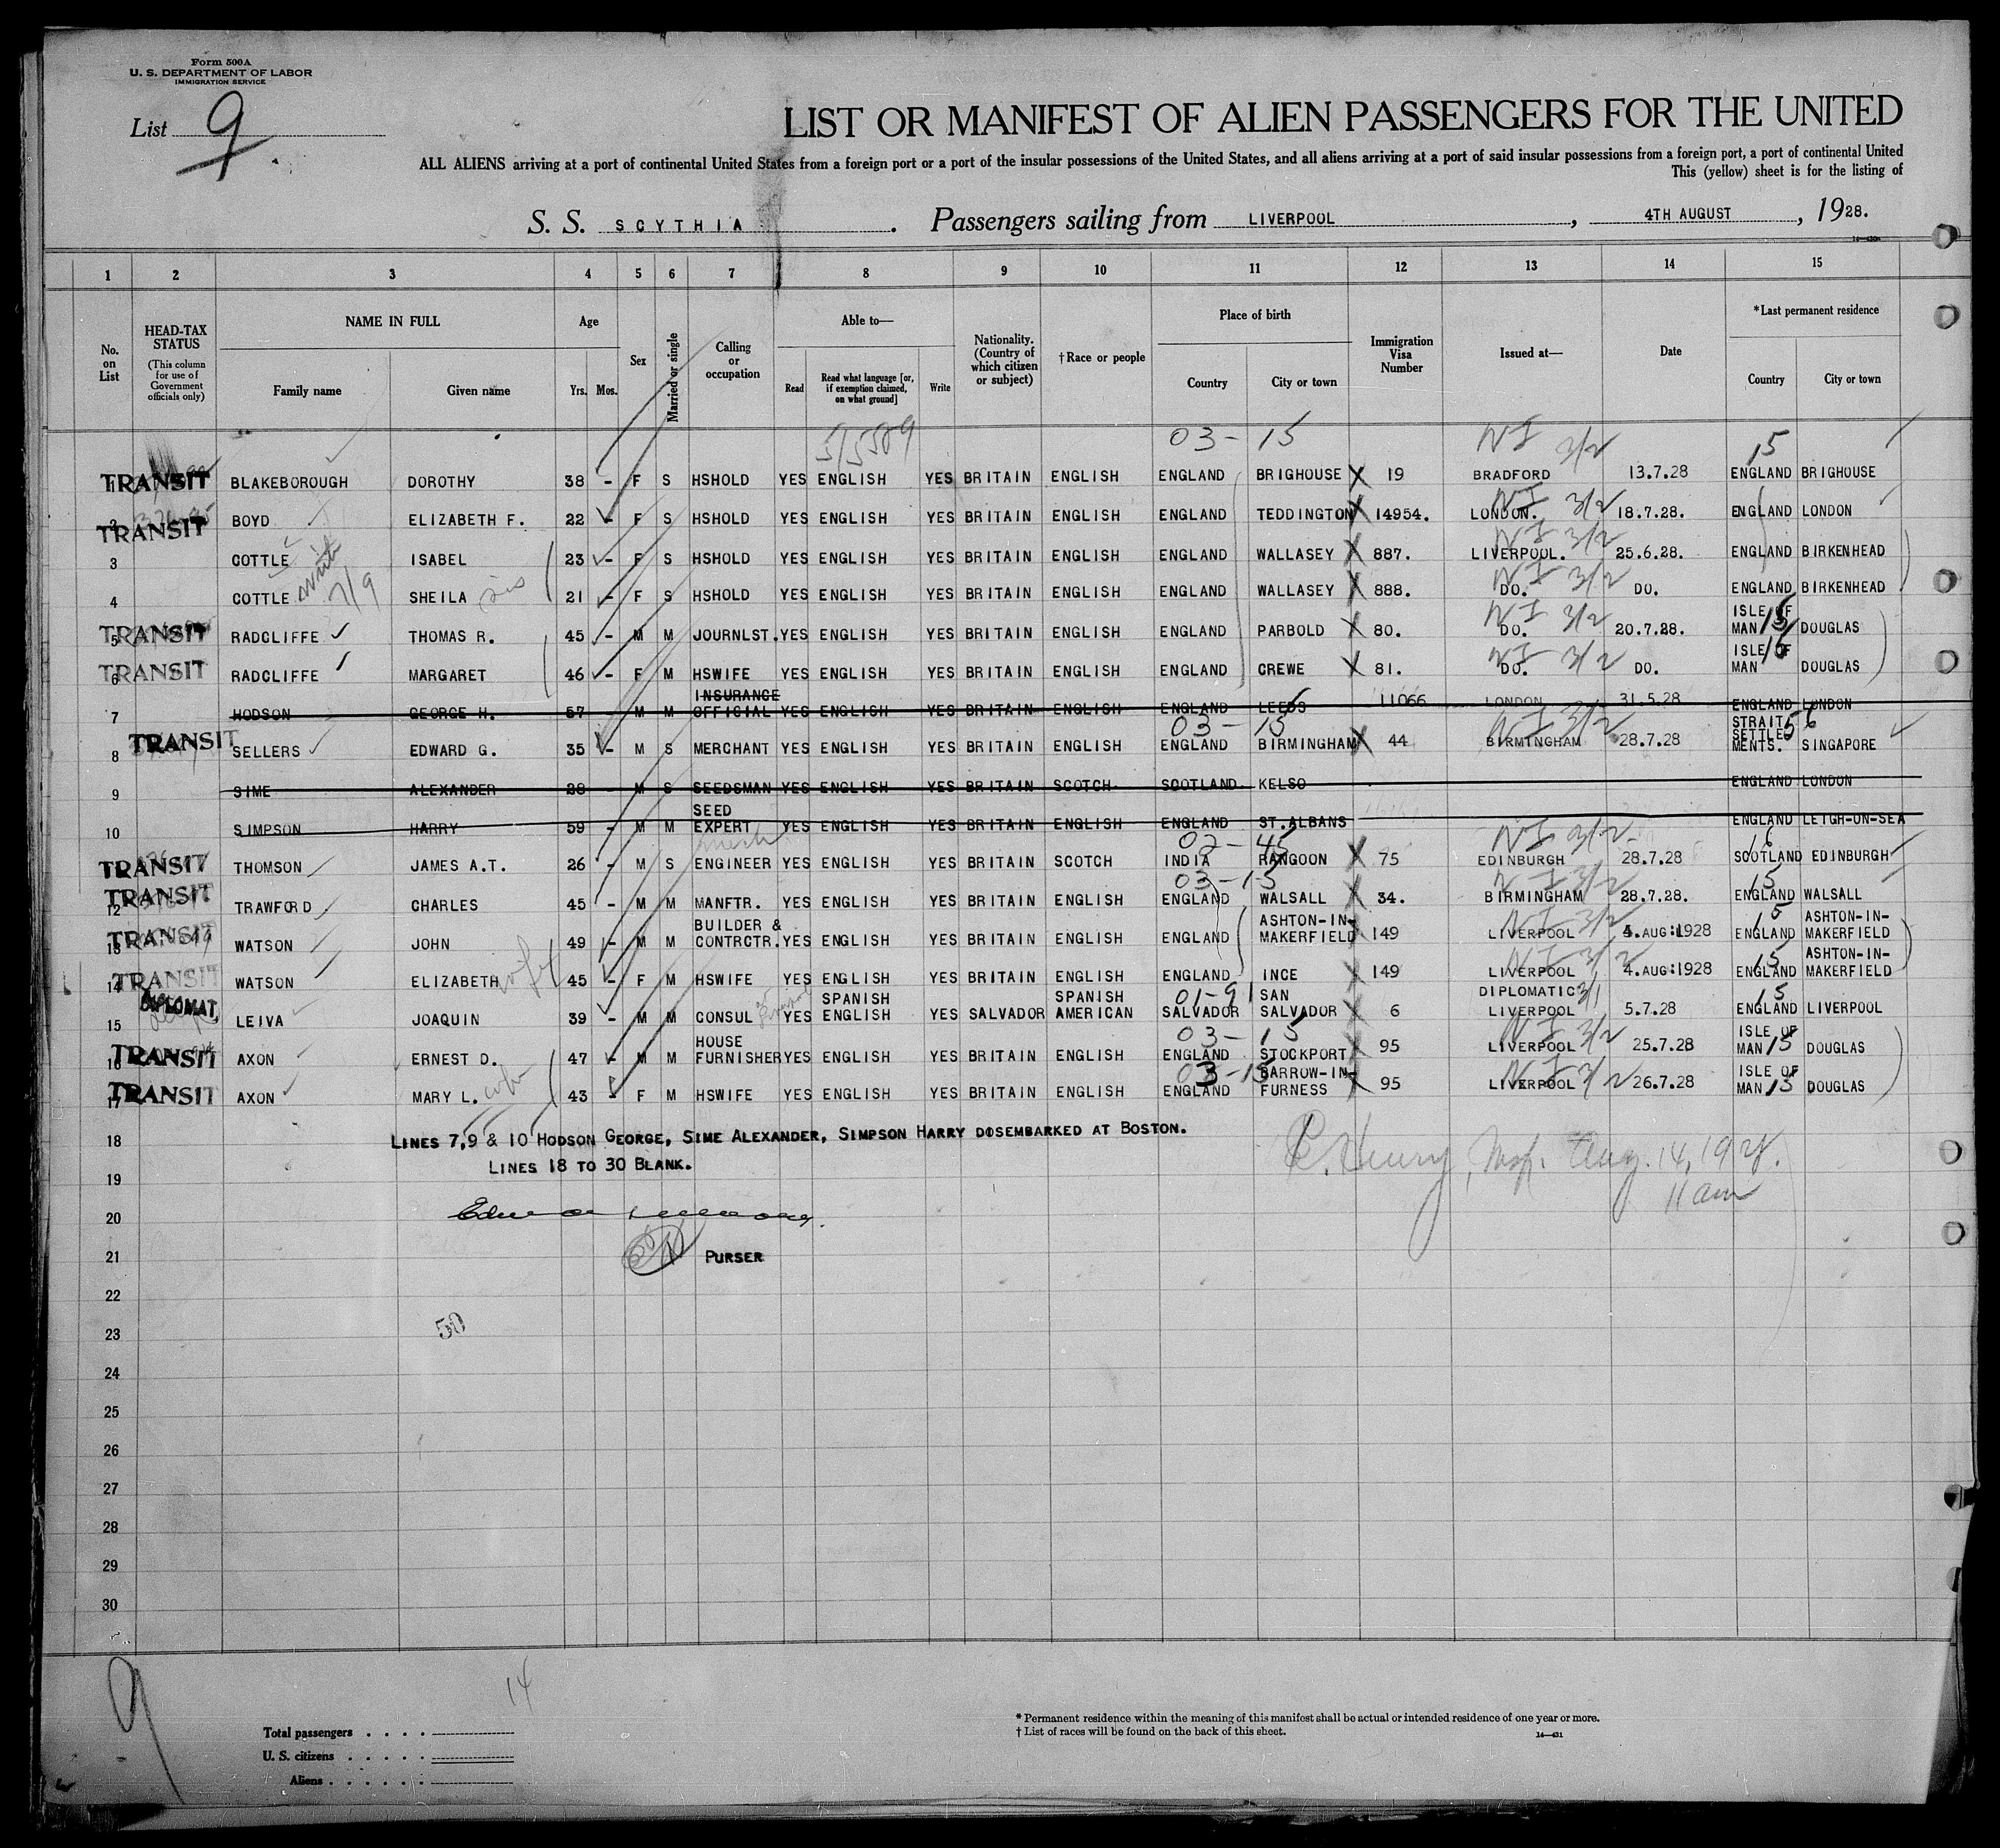 Form 500A
U. S. DEPARTMENT OF LABOR
IMMIGRATION SERVICE
List 9
LIST OR MANIFEST OF ALIEN PASSENGERS FOR THE UNITED
ALL ALIENS arriving at a port of continental United States from a foreign port or a port of the insular possessions of the United States, and all aliens arriving at a port of said insular possessions from a foreign port, a port of continental United
This (yellow) sheet is for the listing of
S. S. SCYTHIA. Passengers sailing from LIVERPOOL, 4TH AUGUST, 1928.
1 2 3 4 5 6 7 8 9 10 11 12 13 14 15
No. on List
HEAD-TAX STATUS (This column for use of Government officials only)
NAME IN FULL Family name Given name
Age Yrs. Mos.
Sex
Married or single
Calling or occupation
Able to— Read Read what language [or, if exemption claimed, on what ground] Write
Nationality. (Country of which citizen or subject)
†Race or people
Place of birth Country City or town
Immigration Visa Number
Issued at—
Date
*Last permanent residence Country City or town
515589 03-15 NI 3/2 15
1 TRANSIT BLAKEBOROUGH DOROTHY 38 - F S HSHOLD YES ENGLISH YES BRITAIN ENGLISH ENGLAND BRIGHOUSE X 19 BRADFORD 13.7.28 ENGLAND BRIGHOUSE
2 TRANSIT BOYD ELIZABETH F. 22 - F S HSHOLD YES ENGLISH YES BRITAIN ENGLISH ENGLAND TEDDINGTON X 14954. LONDON. NI 3/2 18.7.28. ENGLAND LONDON
3 COTTLE ISABEL 23 - F S HSHOLD YES ENGLISH YES BRITAIN ENGLISH ENGLAND WALLASEY X 887. LIVERPOOL. NI 3/2 25.6.28. ENGLAND BIRKENHEAD
4 COTTLE 7/9 SHEILA sis 21 - F S HSHOLD YES ENGLISH YES BRITAIN ENGLISH ENGLAND WALLASEY X 888. DO. NI 3/2 DO. ENGLAND BIRKENHEAD
5 TRANSIT RADCLIFFE THOMAS R. 45 - M M JOURNLST. YES ENGLISH YES BRITAIN ENGLISH ENGLAND PARBOLD X 80. DO. NI 3/2 20.7.28. ISLE OF MAN 15 DOUGLAS
6 TRANSIT RADCLIFFE MARGARET 46 - F M HSWIFE YES ENGLISH YES BRITAIN ENGLISH ENGLAND CREWE X 81. DO. NI 3/2 DO. ISLE OF MAN 15 DOUGLAS
7 HODSON GEORGE H. 57 - M M INSURANCE OFFICIAL YES ENGLISH YES BRITAIN ENGLISH ENGLAND LEEDS 11066 LONDON 31.5.28 ENGLAND LONDON
8 TRANSIT SELLERS EDWARD G. 35 - M S MERCHANT YES ENGLISH YES BRITAIN ENGLISH 03-15 ENGLAND BIRMINGHAM X 44 BIRMINGHAM NI 3/2 28.7.28 STRAIT SETTLEMENTS. 56 SINGAPORE
9 SIME ALEXANDER 28 M S SEEDSMAN YES ENGLISH YES BRITAIN SCOTCH SCOTLAND KELSO ENGLAND LONDON
10 SIMPSON HARRY 59 - M M SEED EXPERT YES ENGLISH YES BRITAIN ENGLISH ENGLAND ST.ALBANS ENGLAND LEIGH-ON-SEA
TRANSIT THOMSON JAMES A.T. 26 - M S ENGINEER YES ENGLISH YES BRITAIN SCOTCH 02-45 INDIA RANGOON X 75 EDINBURGH NI 3/2 28.7.28 16 SCOTLAND EDINBURGH
12 TRANSIT TRAWFORD CHARLES 45 - M M MANFTR. YES ENGLISH YES BRITAIN ENGLISH 03-15 ENGLAND WALSALL X 34. BIRMINGHAM NI 3/2 28.7.28. 15 ENGLAND WALSALL
13 TRANSIT WATSON JOHN 49 - M M BUILDER & CONTRCTR. YES ENGLISH YES BRITAIN ENGLISH ENGLAND ASHTON-IN-MAKERFIELD X 149 LIVERPOOL NI 3/2 4.AUG:1928 15 ENGLAND ASHTON-IN-MAKERFIELD
14 TRANSIT WATSON ELIZABETH wife 45 - F M HSWIFE YES ENGLISH YES BRITAIN ENGLISH ENGLAND INCE X 149 LIVERPOOL NI 3/2 4.AUG:1928 15 ENGLAND ASHTON-IN-MAKERFIELD
15 DIPLOMAT, LEIVA JOAQUIN 39 M M CONSUL YES SPANISH ENGLISH YES SALVADOR SPANISH AMERICAN 01-91 SALVADOR SAN SALVADOR X 6 DIPLOMATIC 3/1 LIVERPOOL 5.7.28 15 ENGLAND LIVERPOOL
16 TRANSIT AXON ERNEST D. 47 - M M HOUSE FURNISHER YES ENGLISH YES BRITAIN ENGLISH 03-15 ENGLAND STOCKPORT X 95 LIVERPOOL NI 3/2 25.7.28 ISLE OF MAN 15 DOUGLAS
17 TRANSIT AXON MARY L. wife 43 - F M HSWIFE YES ENGLISH YES BRITAIN ENGLISH 03-15 ENGLAND BARROW-IN-FURNESS X 95 LIVERPOOL NI 3/2 26.7.28 ISLE OF MAN 15 DOUGLAS
18 LINES 7,9 & 10 HODSON GEORGE, SIME ALEXANDER, SIMPSON HARRY DISEMBARKED AT BOSTON.
LINES 18 TO 30 BLANK.
Henry, Aug. 14, 1928.
11 am
19
20
21 PURSER
22
23 50
24
25
26
27
28
29
30
9
14
Total passengers
U. S. citizens
Aliens
* Permanent residence within the meaning of this manifest shall be actual or intended residence of one year or more.
† List of races will be found on the back of this sheet.
14—431